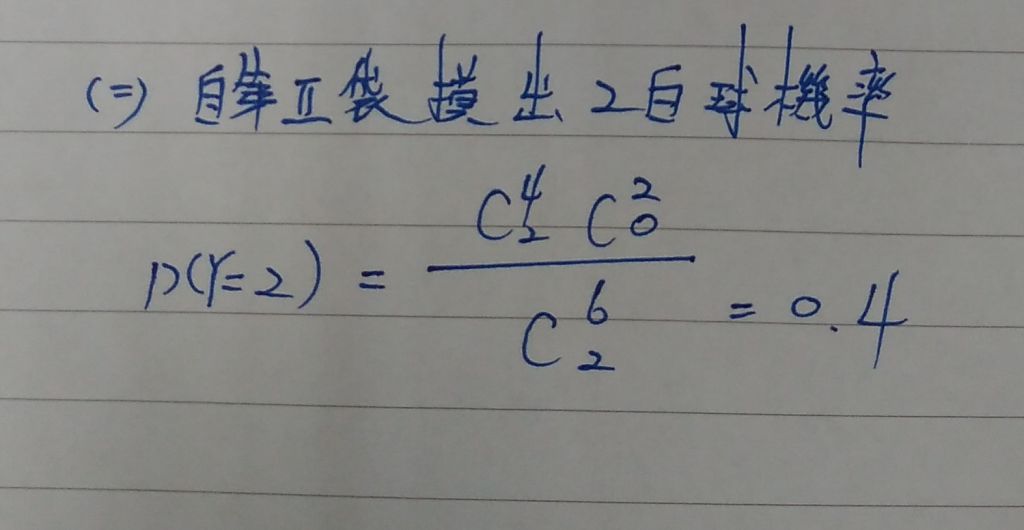 (二) 自第II袋摸出2白球機率
P(Y=2) = \frac{C^4_2 C^2_0}{C^6_2} = 0.4